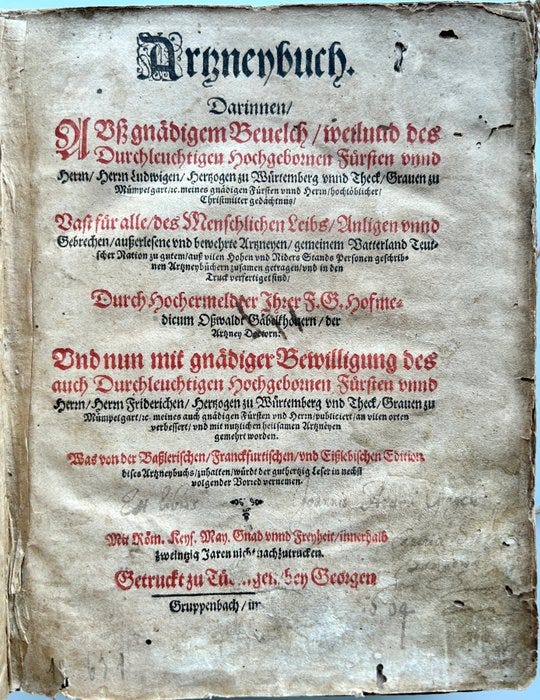 Artzneybuch.
Darinnen/
Auß gnädigem Beuelch/ weiluad des
Durchleuchtigen Hochgebornen Fürsten vnnd
Herrn/ Herrn Ludwigen/ Hertzogen zu Würtemberg vnnd Theck/ Grauen zu
Mümpelgart/ ꝛc. meines gnädigen Fürsten vnnd Herrn/ hochlöblicher/
Christmilter gedächtnus/
Vast für alle/ des Menschlichen Leibs/ Anligen vnnd
Gebrechen/ außerlesene vnd bewehrte Artzneyen/ gemeinem Vatterland Teut-
scher Nation zu gutem/ auß vilen Hohen vnd Niders Stands Personen geschrib-
nen Artzneybüchern zusamen getragen/ vnd in den
Truck verfertiget sind/
Durch Hochermeldter Ihrer F. G. Hofme-
dicum Oßwaldt Gäbelkhouern/ der
Artzney Doctorn.
Vnd nun mit gnädiger Bewilligung des
auch Durchleuchtigen Hochgebornen Fürsten vnnd
Herrn/ Herrn Friderichen/ Hertzogen zu Würtemberg vnd Theck/ Grauen zu
Mümpelgart/ ꝛc. meines auch gnädigen Fürsten vnd Herrn/ publiciert/ an vilen orten
verbessert/ vnd mit nutzlichen heilsamen Artzneyen
gemehrt worden.
Was von der Baßlerischen/ Franckfurtischen/ vnd Eißlebischen Edition
dises Artzneybuchs/ zuhalten/ würdt der guthertzig Leser in nechst
volgender Vorred vernemen.
Mit Röm. Keys. May. Gnad vnnd Freyheit/ innerhalb
zweintzig Jaren nicht nachzutrucken.
Getruckt zu bey Georgen
Gruppenbach/ im